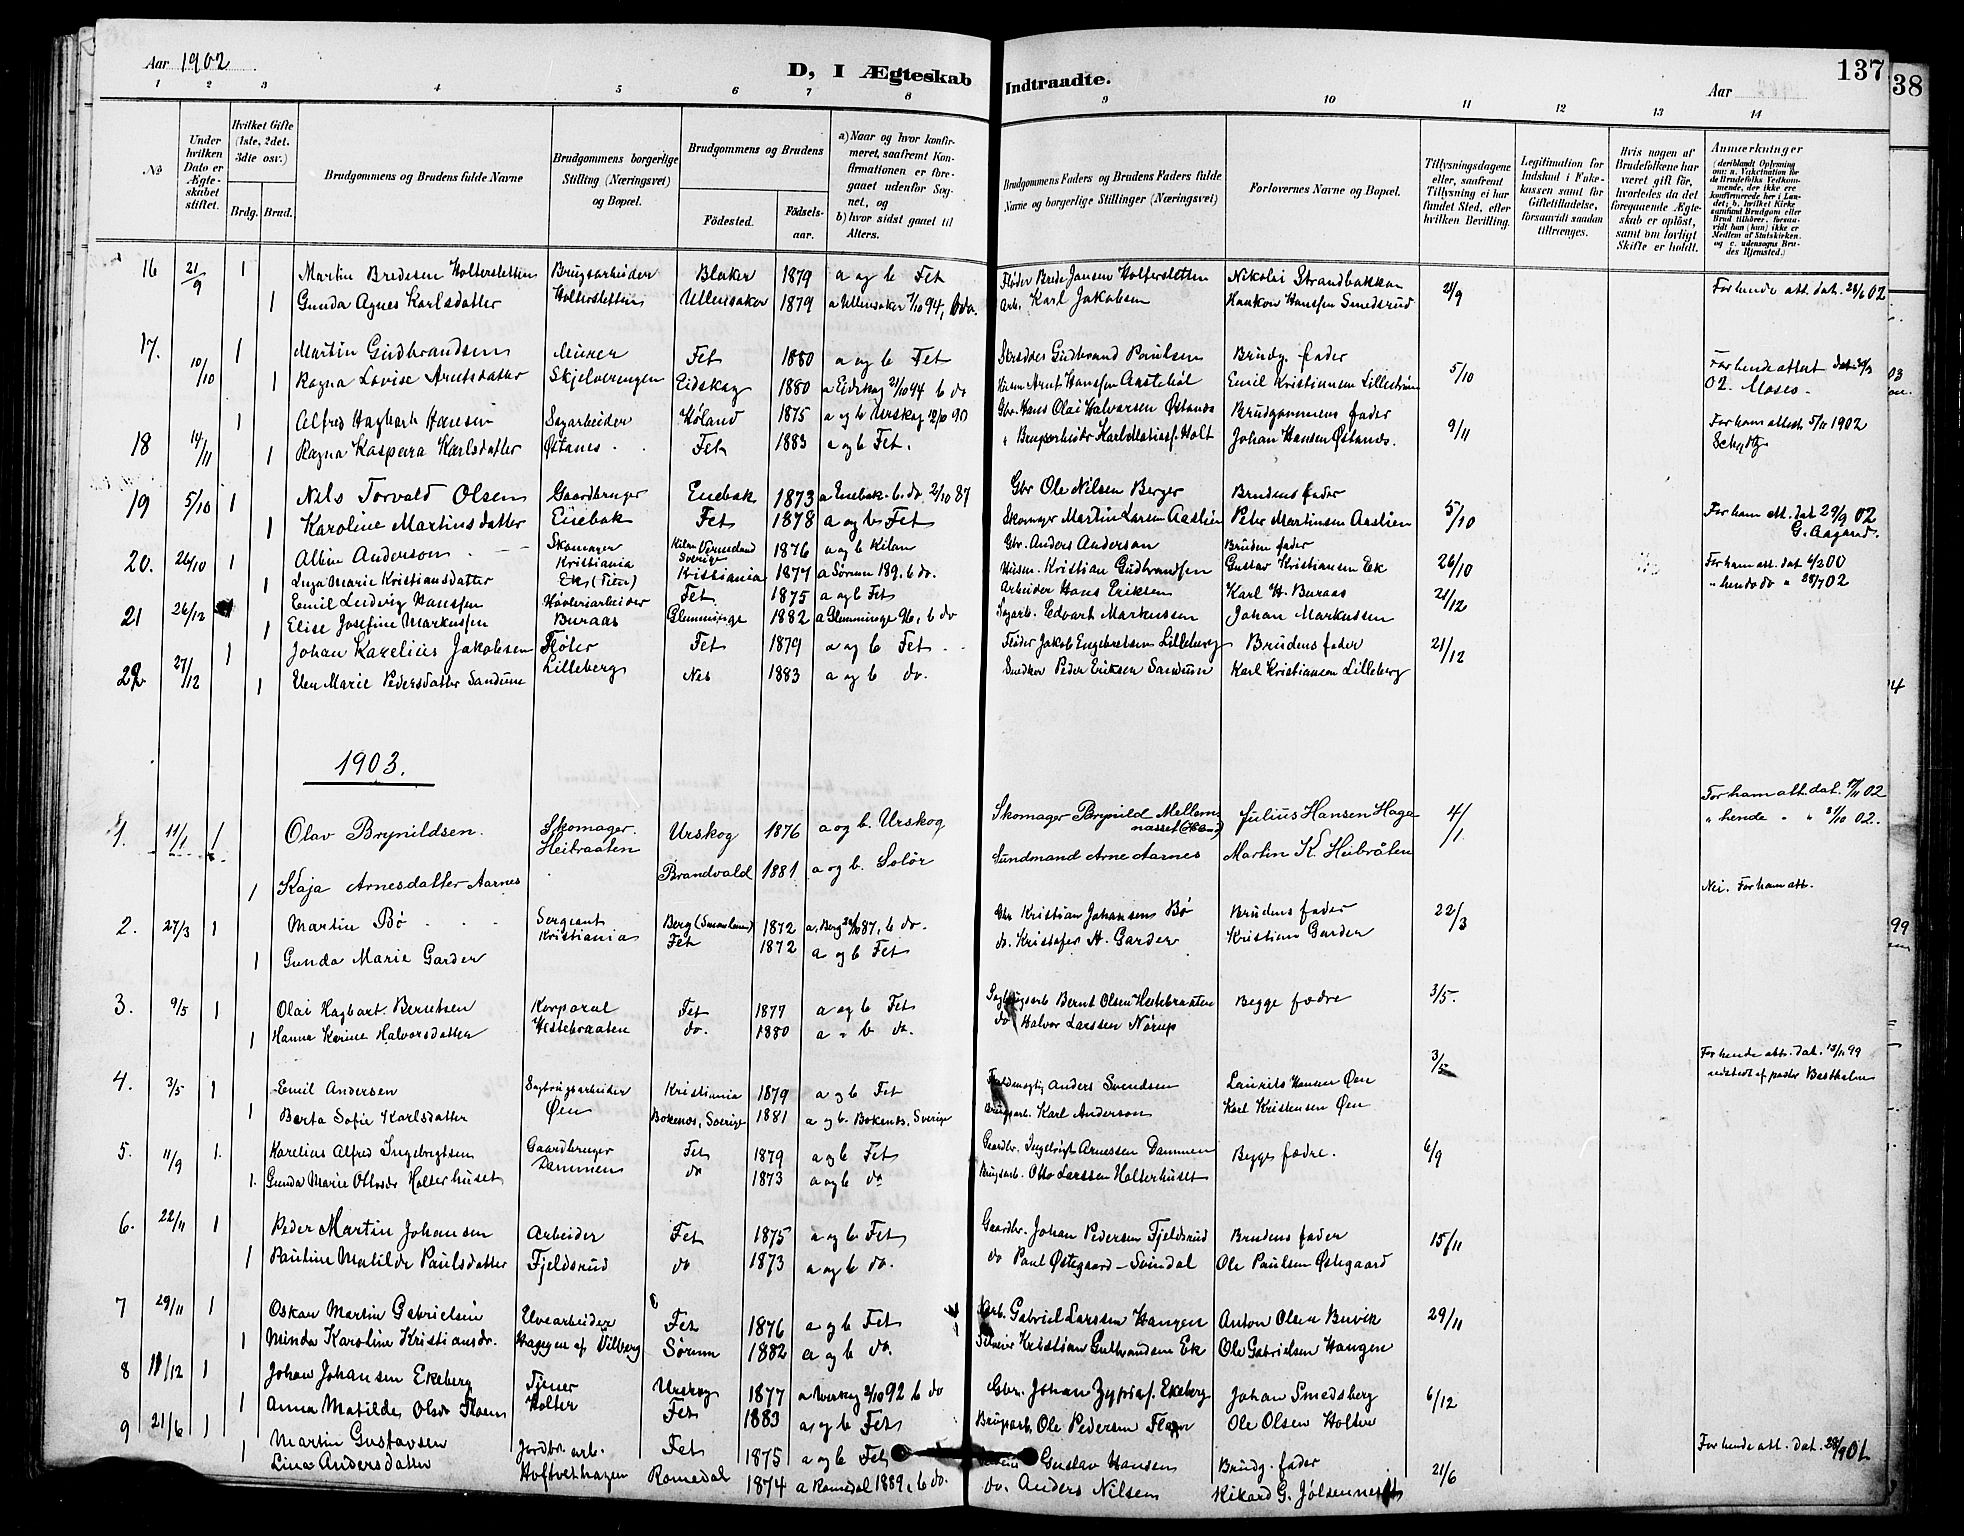 Aar 1902
D, I Ægteskab Indtraadte.
Aar
137
38
1 2 3 4 5 6 7 8 9 10 11 12 13 14
No
Under hvilken Dato er Ægteskabet stiftet.
Hvilket Gifte (1ste, 2det, 3die osv.)
Brdg. Brud.
Brudgommens og Brudens fulde Navne
Brudgommens borgerlige Stilling (Næringsvei) og Bopæl.
Brudgommens og Brudens
Fødested. Fødselsaar.
a) Naar og hvor konfirmeret, saafremt Konfirmationen er foregaaet udenfor Sognet, og
b) hvor sidst gaaet til Alters.
Brudgommens Faders og Brudens Faders fulde Navne og borgerlige Stillinger (Næringsvei)
Forlovernes Navne og Bopæl.
Tillysningsdagene eller, saafremt Tillysning ei har fundet Sted, efter hvilken Bevilling.
Legitimation for Indskud i Enkekassen samt for Giftetilladelse, forsaavidt saadan tiltrænges.
Hvis nogen af Brudefolkene har været gift før, hvorledes da det foregaaende Ægteskab er opløst, samt om lovligt Skifte er holdt.
Anmærkninger
(deriblandt Oplysning om: a. Vakcination for de Brudefolks Vedkommende, der ikke ere konfirmerede her i Landet; b. hvilket Kirkesamfund Brudgom eller Brud tilhører, forsaavidt han (hun) ikke er Medlem af Statskirken, og c. udensogns Brudes Hjemsted.)
16 21/9 1 Martin Bredesen Holterstetten Brugsarbeider Blaker 1879 a og b Fet Fløder Brede Jansen Holterstetten Nikolai Strandbakken 21/9 For hende att. dat. 28/6 02
1 Gunda Agnes Karlsdatter Holterstetten Ullensaker 1879 a Ullensaker 7/10 94, b do. Arb. Karl Jakobsen Haakon Hansen Smedsrud
17. 10/10 1 Martin Gudbrandsen Murer Fet 1880 a og b Fet Skrædder Gudbrand Paulsen Brudg. fader 5/10 For hende attest
1 Ragna Lovise Arntsdatter Skjelverengen Eidskog 1880 a Eidskog 21/10 94 b do Arnt Hansen Emil Kristiansen Lillestrøm 02. Moses.
18 14/11 1 Alfred Hagbart Hansen Sagarbeider Høland 1875 a og b Urskog 12/10 90 Gbr. Hans Olai Halvorsen Østanes Brudgommens fader 9/11 For ham attest 5/11 1902
1 Ragna Kaspara Karlsdatter Østanes Fet 1883 a og b Fet. Brugsarbeider Karl Matias f. Holt Johan Hansen Østanes. Schydtz
19 5/10 1 Nils Torvald Olsen Gaardbruger Enebak 1873 a Enebak. b. do. 2/10 87 Gbr Ole Nilsen Berger Brudens fader 5/10 For ham att. dat 29/9 02
1 Karoline Martinsdatter Enebak Fet 1878 a og b Fet Skomager Martin Larsen Aaslien Peter Martinsen Aaslien G. Aagaard.
20. 26/10 1 Albin Anderson Skomager Kristiania Kilan Vermeland Sverige 1876 a og b Kilan Gbr. Anders Anderson Brudens fader 26/10 For ham att. dat 6/2 00
1 Inga Marie Kristiansdatter Ek, (Feten) Kristiania 1877 a Sørum 189. b do. Kristian Gudbrandsen Gustav Kristiansen Ek " hende do " 28/7 02
21 26/12 Emil Ludvig Hansen Høvleriarbeider Fet 1875 a og b Fet Arbeider Hans Eriksen Karl H. Buraas 21/12
1 Elise Josefine Markussen Buraas Glemminge 1882 a Glemminge 96, b do Sagarb. Edvart Markussen Johan Markussen
22 27/12 1 Johan Karelius Jakobsen Fløter Fet 1879 a og b Fet Fløder Jakob Engebretsen Lilleberg Brudens fader 21/12
1 Elen Marie Pedersdatter Sandum Lilleberg Nes 1883 a og b do. Snedker Peder Eriksen Sandum Karl Kristiansen Lilleberg
1903.
1. 11/1 1 Olav Brynildsen. Skomager. Urskog 1876 a og b. Urskog Skomager Brynild Mellemnasset Julius Hansen Haga 4/1 For ham att. dat. 17/11 02
Heibraaten " hende " " 31/10 02.
1 Kaja Arnesdatter Aarnes Brandvald 1881 a og b. Solør Sundmand Arne Aarnes Martin K. Heibråten
2. 27/3 1 Martin Bø Sergeant Berg (Smaalenene) 1872 a, Berg 87, b do. Gbr Kristian Johansen Bø Brudens fader 22/3 Nei. For ham att.
1 Gunda Marie Garder Kristiania Fet 1872 a og b Fet do. Kristofer H. Garder Kristian Garder
3. 9/5 1 Olai Hagbart Berntsen Korporal Fet 1877 a og b Fet Bernt Olsen Hestebraaten Begge fædre 3/5.
1 Hanna Karine Halvorsdatter Hestebraaten do. 1880 a " b do. do Halvor Larssen Nørup
4. 3/5 1 Emil Andersen Sagbrugsarbeider Kristiania 1879 a og b Fet Anders Svendsen Laurits Hansen Øen 3/5 For hende att. dat. 13/11 99
1 Berta Sofie Karlsdatter Øen Bokenæs, Sverige 1881 a og b. Bokenæs, Sverige Brugsarb. Karl Anderson Karl Kristensen Øen udstedt af pastor Bastholm
5. 11/9 1. Karelius Alfred Ingebrigtsen Gaardbruger Fet 1879 a og b Fet Gaardbr. Ingebrigt Arnessen Dammen Begge fædre. 6/9
1. Gunda Marie Ottosdr Holterhuset Dammen do 1873 a og b do Brugsarb. Otto Larssen Holterhuset
6. 22/11 1 Peder Martin Johansen Arbeider Fet 1875 a og b Fet Gaardbr. Johan Pedersen Fjeldsrud Brudens fader 15/11
1 Pauline Matilde Paulsdatter Fjeldsrud do 1873 a og b do. do Paul Østegaard - Svindal Ole Paulsen Østegaard
7 29/11 1 Oskar Martin Gabrielsen Elvearbeider Fet 1876 a og b Fet Arb. Gabriel Larssen Haugen Anton Olsen Buvik 29/11
1 Minda Karoline Kristiansdr. Haugen af Vilberg Sørum 1882 a og b do. Kristian Gulbrandsen Ek Ole Gabrielsen Haugen
8 11/12 1 Johan Johansen Ekeberg Tjener Urskog 1877 a Urskog 2/10 92 b do Gbr. Johan Ekeberg Johan Smedsberg 6/12
1 Anna Matilde Olsdr Floen Holter Fet 1883 a og b Fet Brugsarb. Ole Pedersen Floen Ole Olsen Holter
9 21/6 1 Martin Gustavsen Jordbr. arb. Fet 1875 a og b Fet Gustav Hansen Brudg. fader 21/6 For hende att. dat. 01
1 Lina Andersdatter Hoftvethagen Romedal 1874 a Romedal 1889, b do. do. Anders Nilsen Rikard G. Jølsen